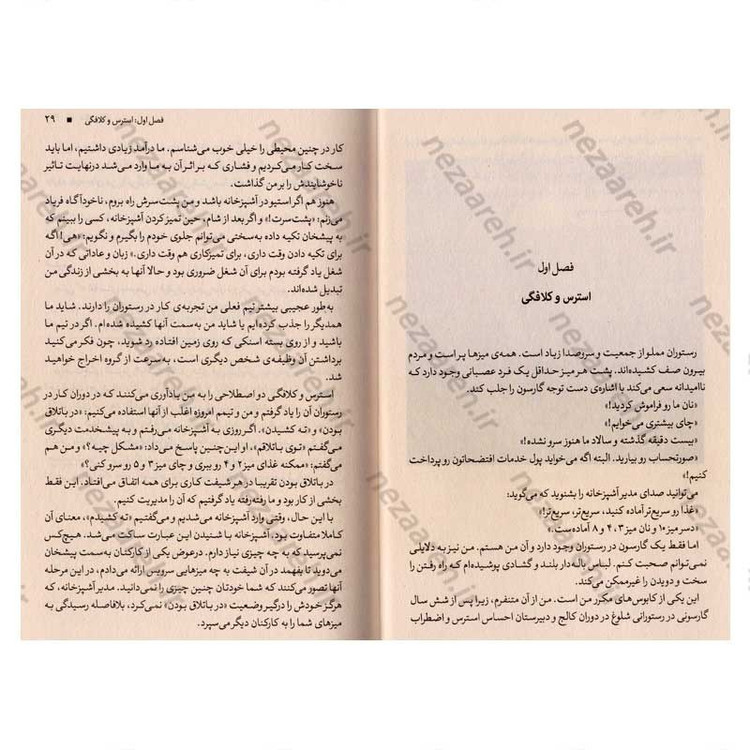 فصل اول
استرس و کلافگی
رستوران مملو از جمعیت و سروصدا زیاد است. همه‌ی میزها پر است و مردم
بیرون صف کشیده‌اند. پشت هر میز حداقل یک فرد عصبانی وجود دارد که
ناامیدانه سعی می‌کند با اشاره‌ی دست توجه گارسون را جلب کند.
«نان ما رو فراموش کردید!»
«چای بیشتری می‌خوایم!»
«بیست دقیقه گذشته و سالاد ما هنوز سرو نشده!»
«صورتحساب رو بیارید. البته اگه می‌خواید پول خدمات افتضاحتون رو پرداخت
کنیم!»
می‌توانید صدای مدیر آشپزخانه را بشنوید که می‌گوید:
«غذا رو سریع‌تر آماده کنید، سریع‌تر، سریع‌تر!»
«دسر میز ۱۰ و نان میز ۳، ۴ و ۸ آماده‌ست.»
اما فقط یک گارسون در رستوران وجود دارد و آن من هستم. من نیز به دلایلی
نمی‌توانم صحبت کنم. لباس بالدار بلند و گشادی پوشیده‌ام که راه رفتن را
سخت و دویدن را غیرممکن می‌کند.
این یکی از کابوس‌های مکرر من است. من از آن متنفرم، زیرا پس از شش سال
گارسونی در رستورانی شلوغ در دوران کالج و دبیرستان احساس استرس و اضطراب
فصل اول: استرس و کلافگی ■ ۲۹
کار در چنین محیطی را خیلی خوب می‌شناسم. ما درآمد زیادی داشتیم، اما باید
سخت کار می‌کردیم و فشاری که بر اثر آن به ما وارد می‌شد درنهایت تاثیر
ناخوشایندش را بر من گذاشت.
هنوز هم اگر استیو در آشپزخانه باشد و من پشت‌سرش راه بروم، ناخودآگاه فریاد
می‌زنم: «پشت‌سرت!» و اگر بعد از شام، حین تمیز کردن آشپزخانه، کسی را ببینم که
به پیشخان تکیه داده به‌سختی می‌توانم جلوی خودم را بگیرم و نگویم: «هی! اگه
برای تکیه دادن وقت داری، برای تمیزکاری هم وقت داری.» زبان و عاداتی که در آن
شغل یاد گرفته بودم برای آن شغل ضروری بود و حالا آنها به بخشی از زندگی من
تبدیل شده‌اند.
به‌طور عجیبی بیشتر تیم فعلی من تجربه‌ی کار در رستوران را دارند. شاید ما
همدیگر را جذب کرده‌ایم یا شاید من به‌سمت آنها کشیده شده‌ام. اگر در تیم ما
باشید و از روی بسته اسنکی که روی زمین افتاده رد شوید، چون فکر می‌کنید
برداشتن آن وظیفه‌ی شخص دیگری است، به‌سرعت از گروه اخراج خواهید
شد.
استرس و کلافگی دو اصطلاحی را به من یادآوری می‌کنند که در دوران کار در
رستوران آن را یاد گرفتم و من و تیمم امروزه اغلب از آنها استفاده می‌کنیم: «در باتلاق
بودن» و «ته کشیدن». اگر روزی به آشپزخانه می‌رفتم و به پیشخدمت دیگری
می‌گفتم «توی باتلاقم»، او این‌چنین پاسخ می‌داد: «مشکل چیه؟» و من هم
می‌گفتم: «ممکنه غذای میز ۲ و ۴ رو ببری و چای میز ۳ و ۵ رو سرو کنی؟»
در باتلاق بودن تقریبا در هر شیفت کاری برای همه اتفاق می‌افتاد. این فقط
بخشی از کار بود و ما رفته‌رفته یاد گرفتیم که آن را مدیریت کنیم.
با این حال، وقتی وارد آشپزخانه می‌شدیم و می‌گفتیم «ته کشیدم»، معنای آن
کاملا متفاوت بود. آشپزخانه با شنیدن این عبارت ساکت می‌شد. هیچ‌کس
نمی‌پرسید که به چه چیزی نیاز دارم. درعوض یکی از کارکنان به‌سمت پیشخان
می‌دوید تا بفهمد در آن شیفت به چه میزهایی سرویس ارائه می‌دادم، در این مرحله
آنها تصور می‌کنند که شما خودتان چنین چیزی را نمی‌دانید. مدیر آشپزخانه، که
هرگز خودش را درگیر وضعیت «در باتلاق بودن» نمی‌کرد، بلافاصله رسیدگی به
میزهای شما را به کارکنان دیگر می‌سپرد.
nezaareh.ir